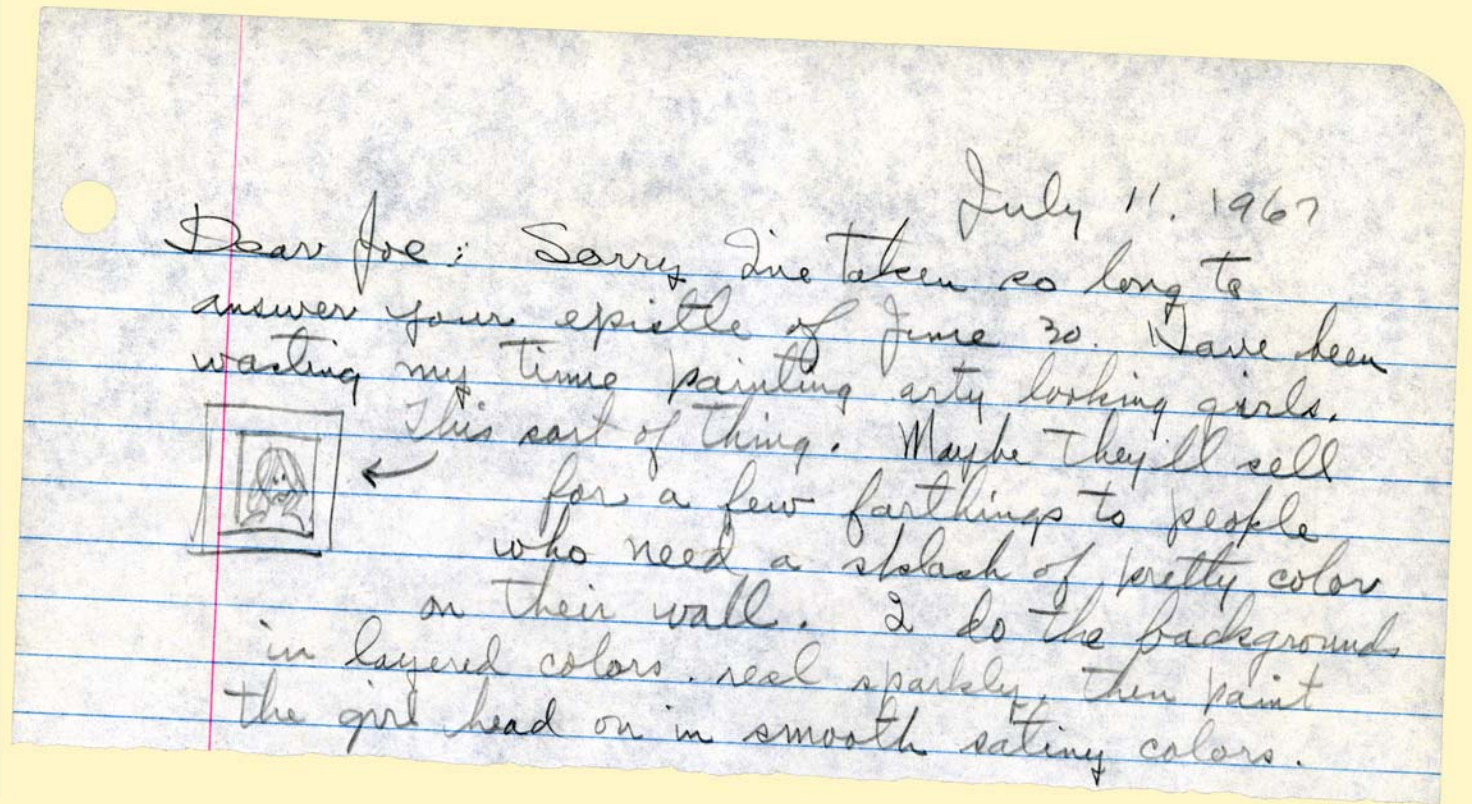 July 11. 1967
Dear Joe: Sorry I've taken so long to
answer your epistle of June 30. Have been
wasting my time painting arty looking girls.
This sort of thing. Maybe they'll sell
for a few farthings to people
who need a splash of pretty color
on their wall. I do the backgrounds
in layered colors. real sparkly, then paint
the girl head on in smooth satiny colors.